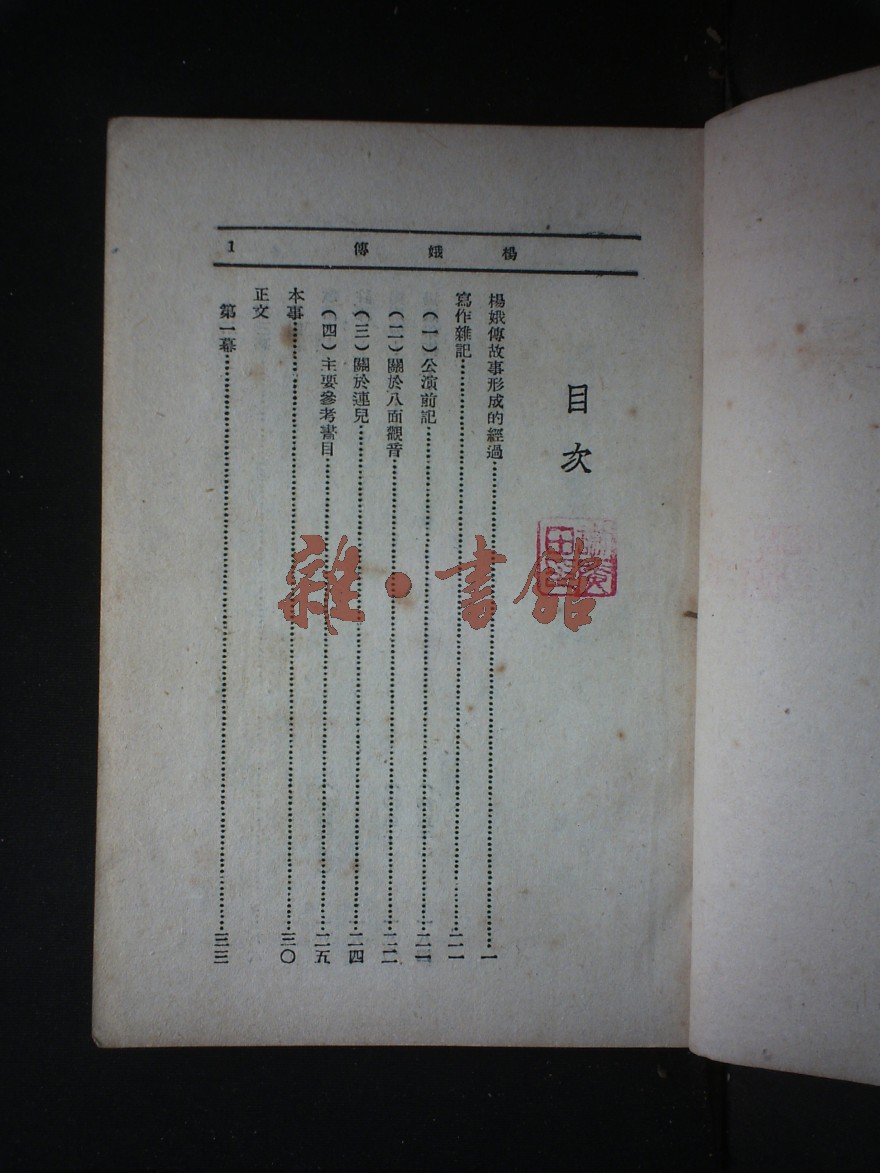 楊娥傳
1
目次
楊娥傳故事形成的經過…………一
寫作雜記…………二一
(一)公演前記…………二一
(二)關於八面觀音…………二二
(三)關於連兒…………二四
(四)主要參考書目…………二五
本事…………三〇
正文
第一幕…………三三
雜·書館